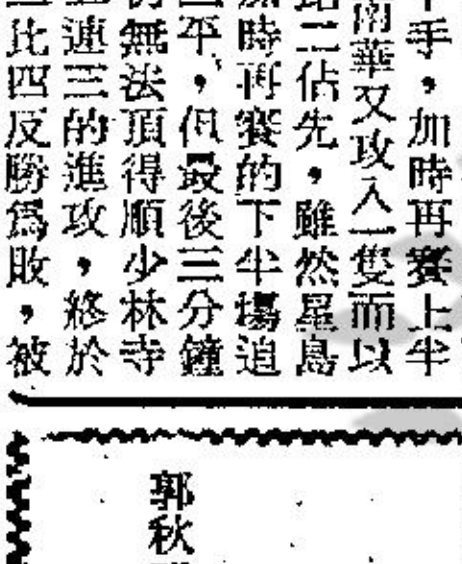 手，加時再賽上半
南華又攻入一隻而以
二佔先，雖然星島
時再賽的下半場迫
平，但最後三分鐘
無法頂得順少林寺
連三的進攻，終於
比四反勝爲敗，被
郭秋